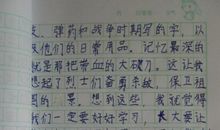 支、弹药和战争时期写的字，以
及他们的日常用品。记忆最深的
就是那把带血的大砍刀。这让我
想起了烈士们奋勇杀敌，保卫祖
国的一景，想到这些，我就觉得
我们一定要好好学习，长大让